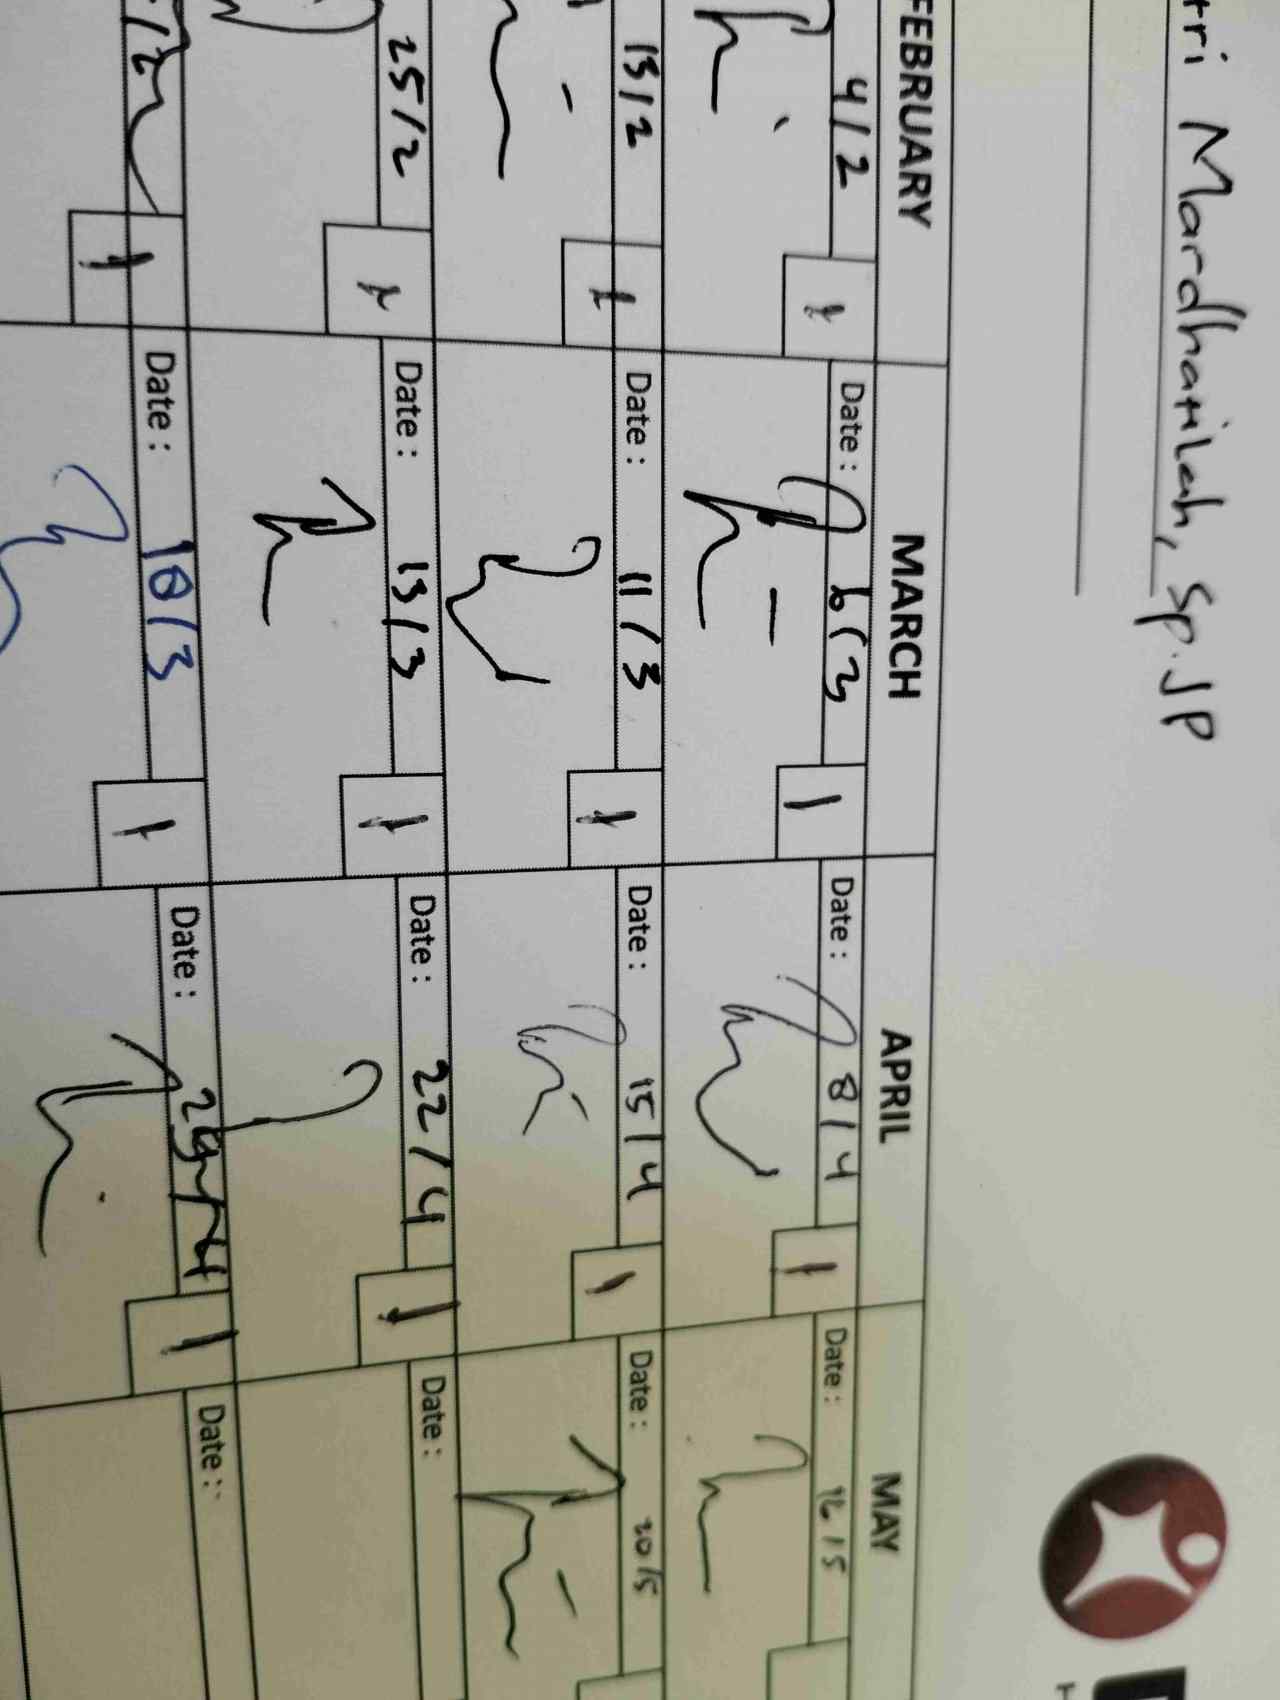 tri Mardhatilah, Sp.JP
FEBRUARY MARCH APRIL MAY
4/2 Date : 6/3 Date : 8/4 Date : 12/5
1 1 1
13/2 Date : 11/3 Date : 15/4 Date : 20/5
1 1 1
25/2 Date : 13/3 Date : 22/4 Date :
1 1 1
Date : 18/3 Date : 29/4 Date :
1 1 1